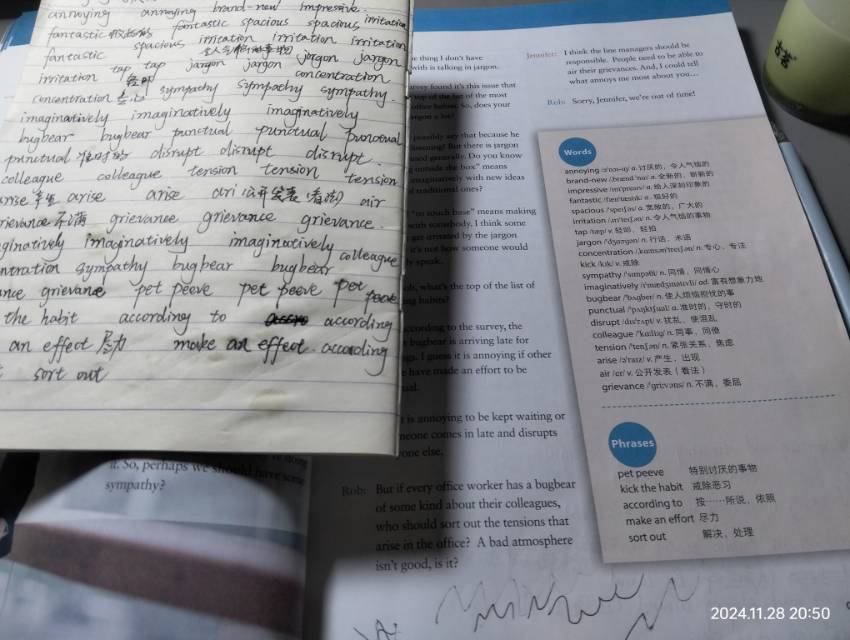 annoying annoying brand-new impressive.
fantastic fantastic spacious spacious irritation
fantastic spacious irritation irritation irritation
irritation tap tap 轻叩 jargon jargon jorgon jargon
concentration 专心 sympathy sympathy sympathy. concentration
imaginatively imaginatively imaginatively
bugbear bugbear punctual punctual punctual
punctual 准时的 disrupt disrupt disrupt.
colleague colleague tension tension tension
arise 产生 arise arise ari 公开发表(看法) air
rievance 不满 grievance grievance grievance.
ginatively imaginatively imaginatively colleague
ntration sympathy bugbear bugbear
nce grievance pet peeve pet peeve pet peeve
the habit according to according
an effect 尽力 make an effect. according
sort out
it. So, perhaps we should have some
sympathy?
e thing I don't have
with is talking in jargon.
rvey found it's this issue that
top of the list of the most
office habits. So, does your
jargon a lot?
possibly say that because he
istening! But there is jargon
used generally. Do you know
outside the box" means
imaginatively with new ideas
d traditional ones?
"to touch base" means making
with somebody. I think some
get irritated by the jargon
it's not how someone would
ly speak.
ob, what's the top of the list of
ng habits?
ccording to the survey, the
bugbear is arriving late for
gs. I guess it is annoying if other
have made an effort to be
ual.
t is annoying to be kept waiting or
meone comes in late and disrupts
one else.
Rob: But if every office worker has a bugbear
of some kind about their colleagues,
who should sort out the tensions that
arise in the office? A bad atmosphere
isn't good, is it?
Jennifer: I think the line managers should be
responsible. People need to be able to
air their grievances. And, I could tell
what annoys me most about you…
Rob: Sorry, Jennifer, we're out of time!
Words
annoying /ə'nɔɪ-ɪŋ/ a. 讨厌的，令人气恼的
brand-new /ˌbrænd 'nu/ a. 全新的，崭新的
impressive /ɪm'presɪv/ a. 给人深刻印象的
fantastic /fæn'tæstɪk/ a. 极好的
spacious /'speɪʃəs/ a. 宽敞的，广大的
irritation /ˌɪrɪ'teɪʃən/ n. 令人气恼的事物
tap /tæp/ v. 轻叩，轻拍
jargon /'dʒɑrgən/ n. 行话，术语
concentration /ˌkɑnsən'treɪʃən/ n. 专心，专注
kick /kɪk/ v. 戒除
sympathy /'sɪmpəθi/ n. 同情，同情心
imaginatively /ɪ'mædʒɪnətɪvli/ ad. 富有想象力地
bugbear /'bʌgber/ n. 使人烦恼担忧的事
punctual /'pʌŋktʃuəl/ a. 准时的，守时的
disrupt /dɪs'rʌpt/ v. 扰乱，使混乱
colleague /'kɑlig/ n. 同事，同僚
tension /'tenʃən/ n. 紧张关系，焦虑
arise /ə'raɪz/ v. 产生，出现
air /er/ v. 公开发表（看法）
grievance /'gri:vəns/ n. 不满，委屈
Phrases
pet peeve 特别讨厌的事物
kick the habit 戒除恶习
according to 按……所说，依照
make an effort 尽力
sort out 解决，处理
2024.11.28 20:50